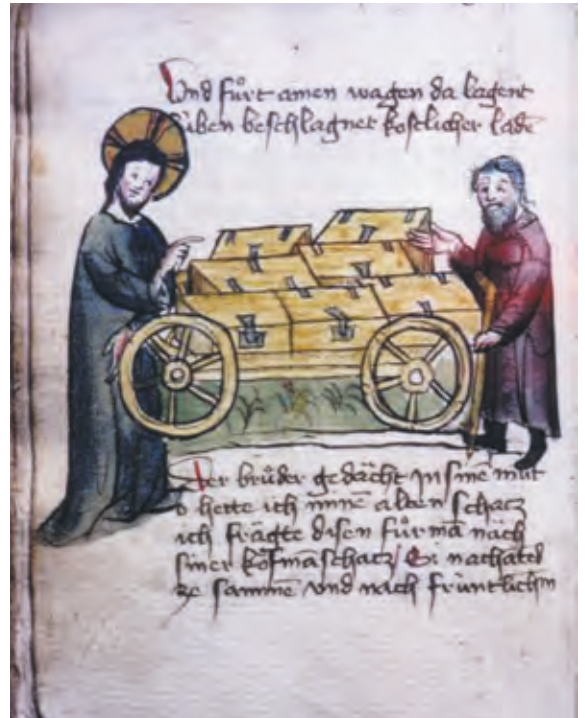 Vnd fůrt ainen wagen da lagent
siben beschlagner kostlicher ladē
Der brůder gedächt jn sinē můt
o hette ich minē alten schatz
ich frägte disen fůrmā näch
siner kofmāschatz / Si nachatēd
ze sammē vnd nach früntlichm